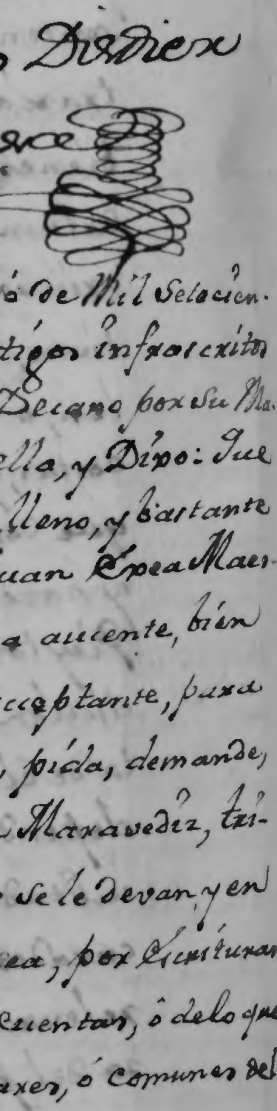 Dirdiex
ó de Mil Setecien-
tigos infrascritos
Decano por su Ma-
ella, y Dixo: Que
lleno, y bastante
uan Exea Maes-
a aucente, bien
acceptante, para
, pida, demande,
Maravediz, tri-
se le devan, y en
ea, por Escrituras
cuentas, ó delo que
ares, ó comunes del